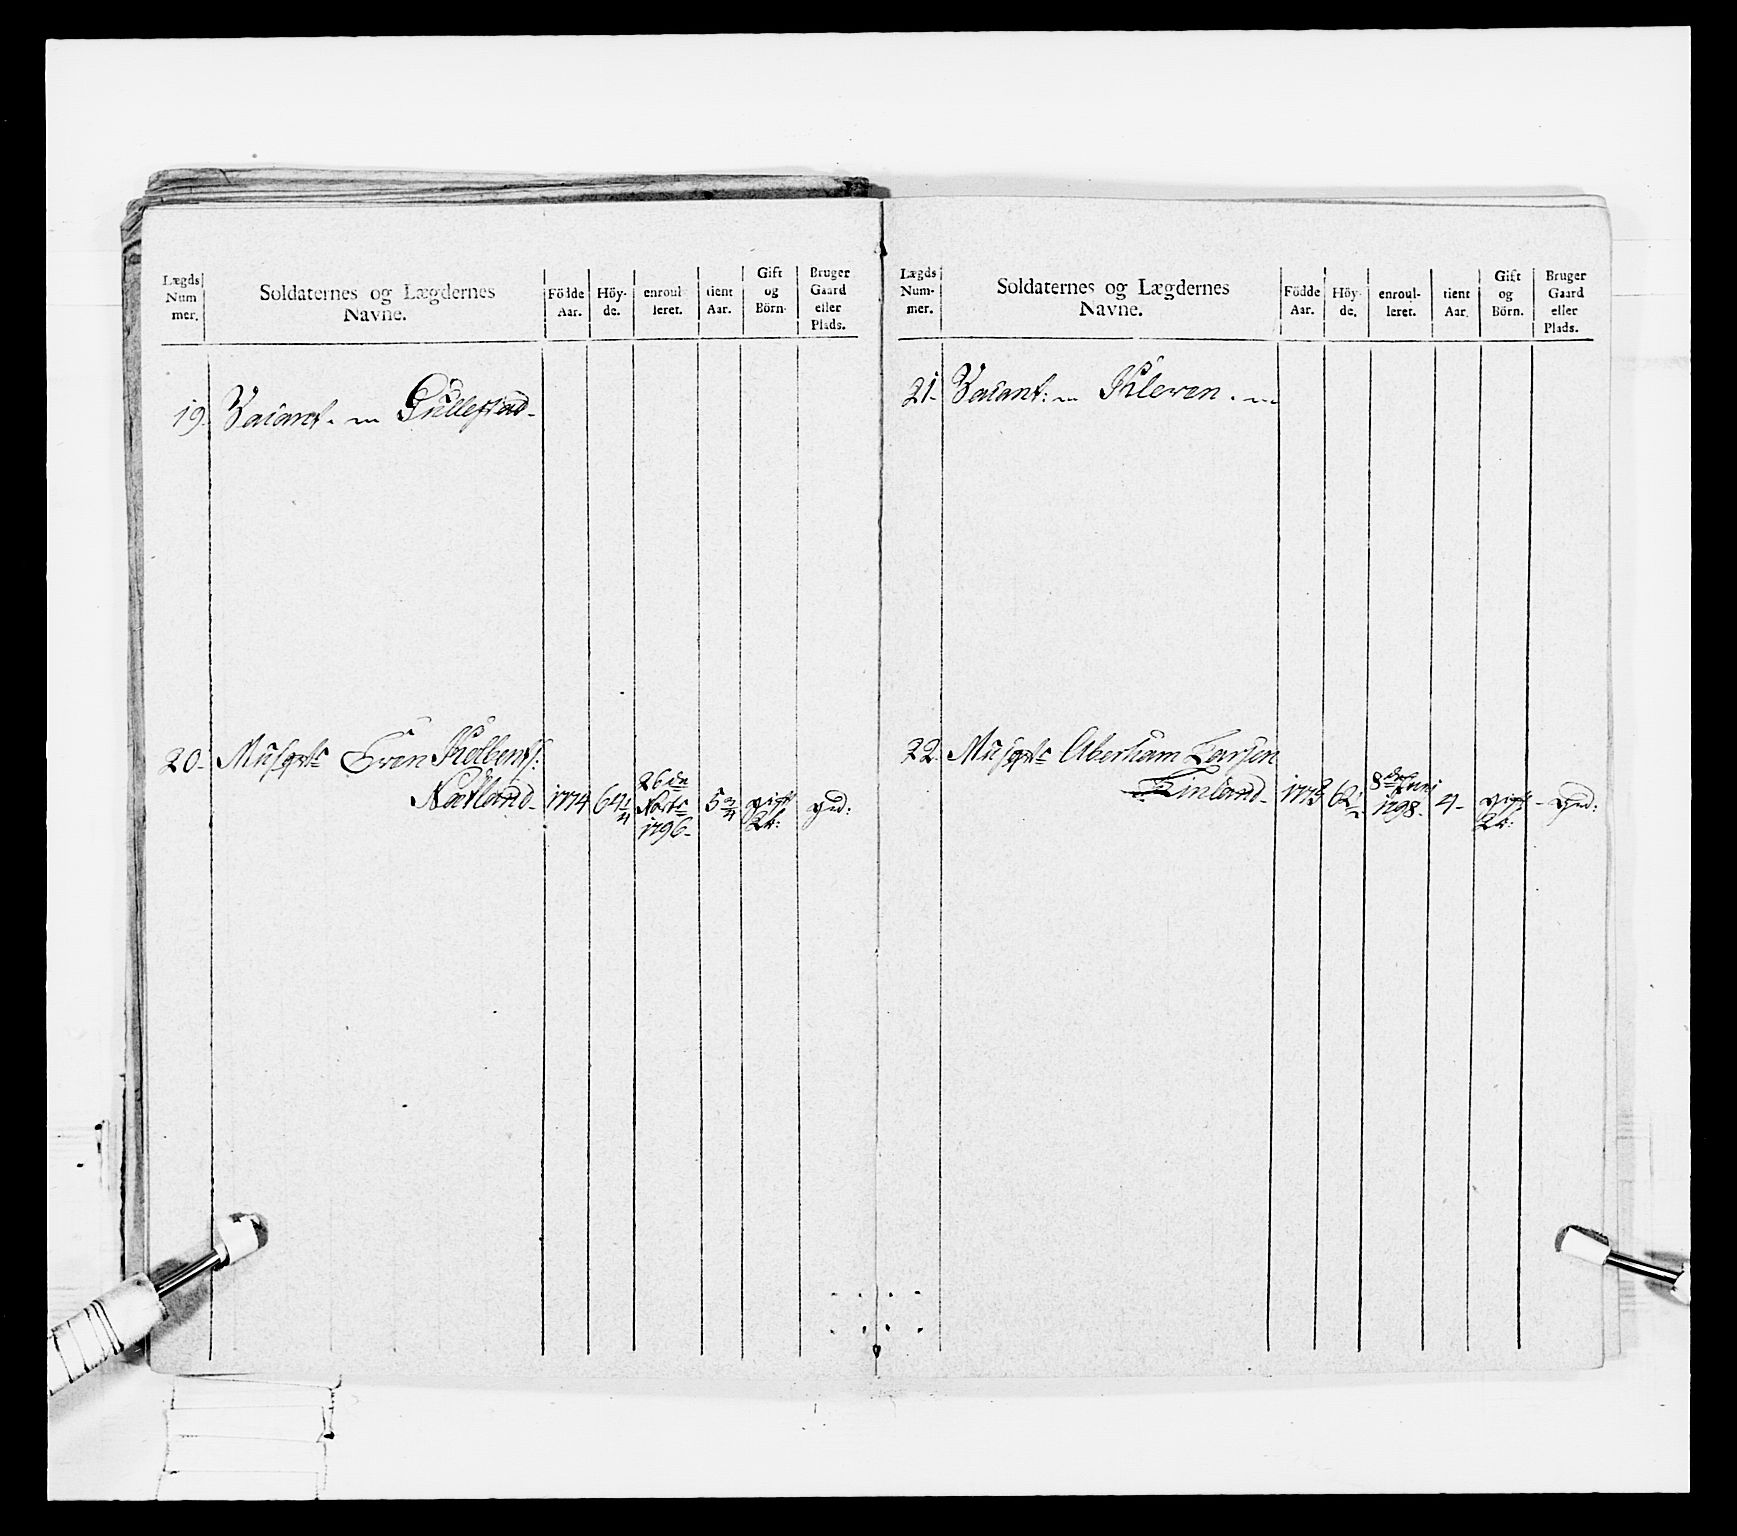 Lægds Num mer.
Soldaternes og Lægdernes Navne.
Födde Aar.
Höy- de.
enroul- leret.
tient Aar.
Gift og Börn.
Bruger Gaard eller Plads.
19. Vacant. Gullestad-
20. Musqt: Sven
Natland- 1774 64 1/4 26de 1796- 5 3/4 gift gd:
Lægds Num- mer.
Soldaternes og Lægdernes Navne.
Födde Aar.
Höy- de.
enroul- leret.
tient Aar.
Gift og Börn.
Bruger Gaard eller Plads.
21. Vacant: Kleven.
22. Musqt: Aberham Larsen
Finland- 1773 62 1/2 8de Juni 1798- 4- gift- gd: